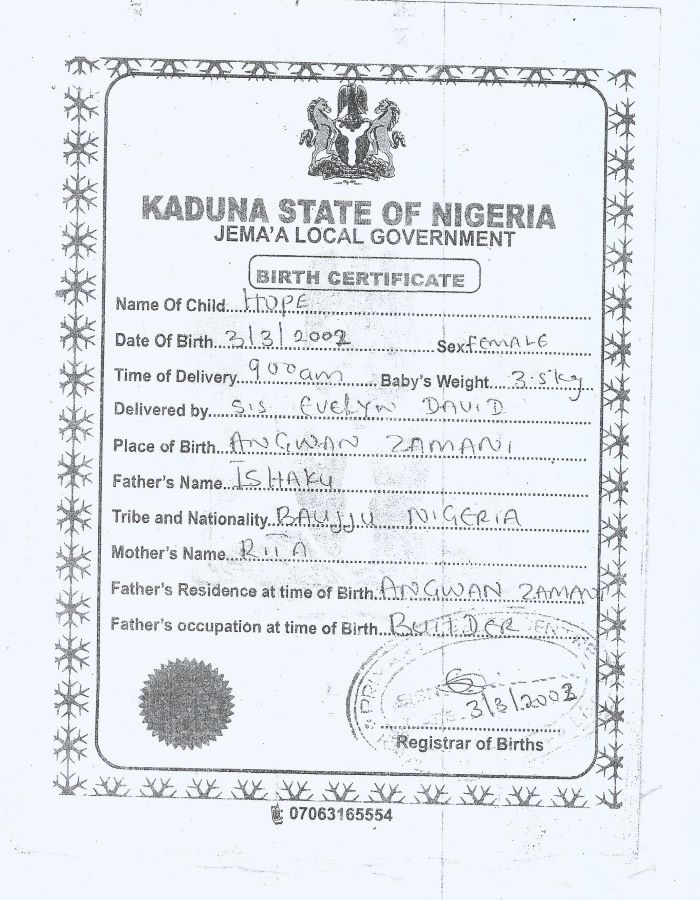 KADUNA STATE OF NIGERIA
JEMA'A LOCAL GOVERNMENT
BIRTH CERTIFICATE
Name Of Child...HOPE
Date Of Birth...3/3/2002 Sex:FEMALE
Time of Delivery...900am Baby's Weight...3.5kg
Delivered by...SIS EVELYN DAVID
Place of Birth...ANGWAN ZAMANI
Father's Name...ISHAKU
Tribe and Nationality...BAUJJU NIGERIA
Mother's Name...RITA
Father's Residence at time of Birth...ANGWAN ZAMANI
Father's occupation at time of Birth...BUILDER
3/3/2002
Registrar of Births
07063165554